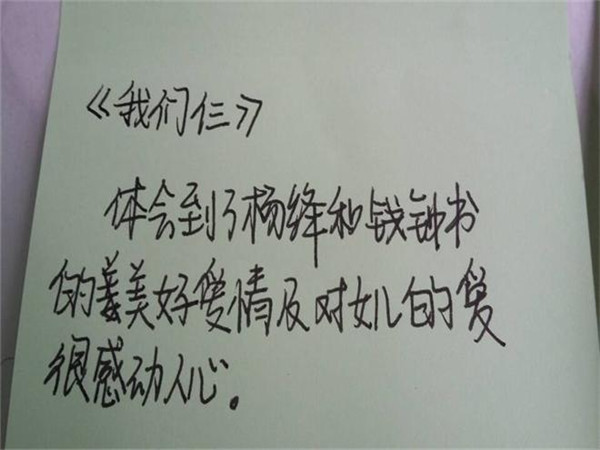 《我们仨》
体会到了杨绛和钱钟书
的美好爱情及对女儿的爱
很感动人心。